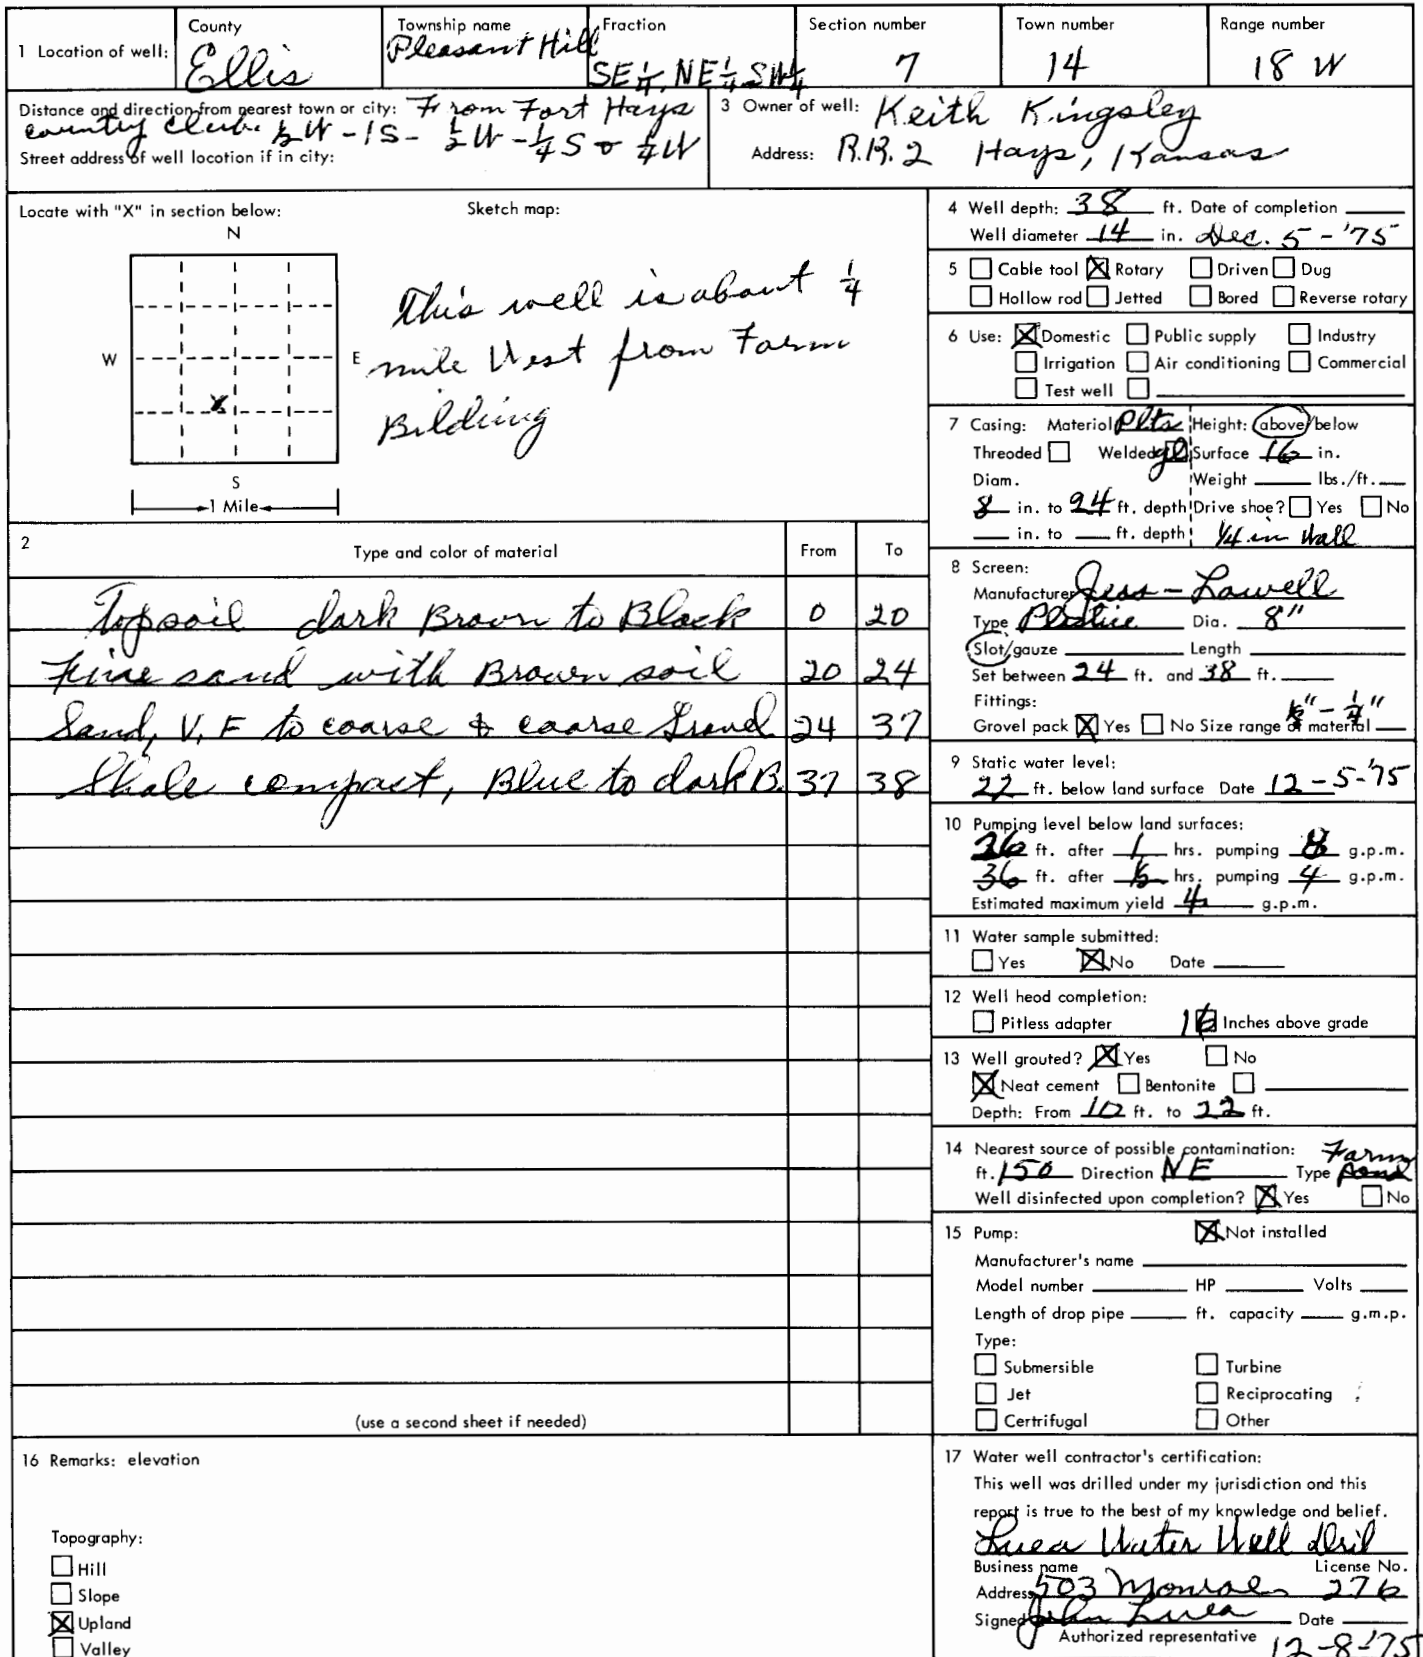 1 Location of well: County Ellis Township name Pleasant Hill Fraction SE 1/4, NE 1/4 SW 1/4 Section number 7 Town number 14 Range number 18 W
Distance and direction from nearest town or city: From Fort Hays
country club. 1/2 W - 1S - 1/2 W - 1/4 S 1/4 W
Street address of well location if in city:
3 Owner of well: Keith Kingsley
Address: R.R.2 Hays, Kansas
Locate with "X" in section below:
N
W
E
X
S
1 Mile
Sketch map:
This well is about 1/4
mile West from Farm
Bilding
2 Type and color of material From To
Topsoil dark Brown to Black 0 20
Fine sand with Brown soil 20 24
Sand, V.F to coarse & coarse Gravel 24 37
Shale compact, Blue to dark B. 37 38
(use a second sheet if needed)
4 Well depth: 38 ft. Date of completion
Well diameter 14 in. Dec. 5 - '75
5 Cable tool Rotary Driven Dug
Hollow rod Jetted Bored Reverse rotary
6 Use: Domestic Public supply Industry
Irrigation Air conditioning Commercial
Test well
7 Casing: Material Height: above/below
Threaded Welded Surface 16 in.
Diam. Weight lbs./ft.
8 in. to 24 ft. depth Drive shoe? Yes No
in. to ft. depth 1/4 in Wall
8 Screen:
Manufacturer Jess - Lowell
Type Dia. 8"
Slot/gauze Length
Set between 24 ft. and 38 ft.
Fittings:
Gravel pack Yes No Size range of material - 1/4"
9 Static water level:
22 ft. below land surface Date 12-5-'75
10 Pumping level below land surfaces:
36 ft. after 1 hrs. pumping 8 g.p.m.
36 ft. after hrs. pumping 4 g.p.m.
Estimated maximum yield 4 g.p.m.
11 Water sample submitted:
Yes No Date
12 Well head completion:
Pitless adapter 16 Inches above grade
13 Well grouted? Yes No
Neat cement Bentonite
Depth: From 10 ft. to 22 ft.
14 Nearest source of possible contamination: Farm
ft. 150 Direction NE Type pond
Well disinfected upon completion? Yes No
15 Pump: Not installed
Manufacturer's name
Model number HP Volts
Length of drop pipe ft. capacity g.m.p.
Type:
Submersible Turbine
Jet Reciprocating
Certrifugal Other
16 Remarks: elevation
Topography:
Hill
Slope
Upland
Valley
17 Water well contractor's certification:
This well was drilled under my jurisdiction and this
report is true to the best of my knowledge and belief.
Luea Water Well Dril
Business name License No.
Address 503 Monroe 276
Signed John Luea Date
Authorized representative 12-8-'75